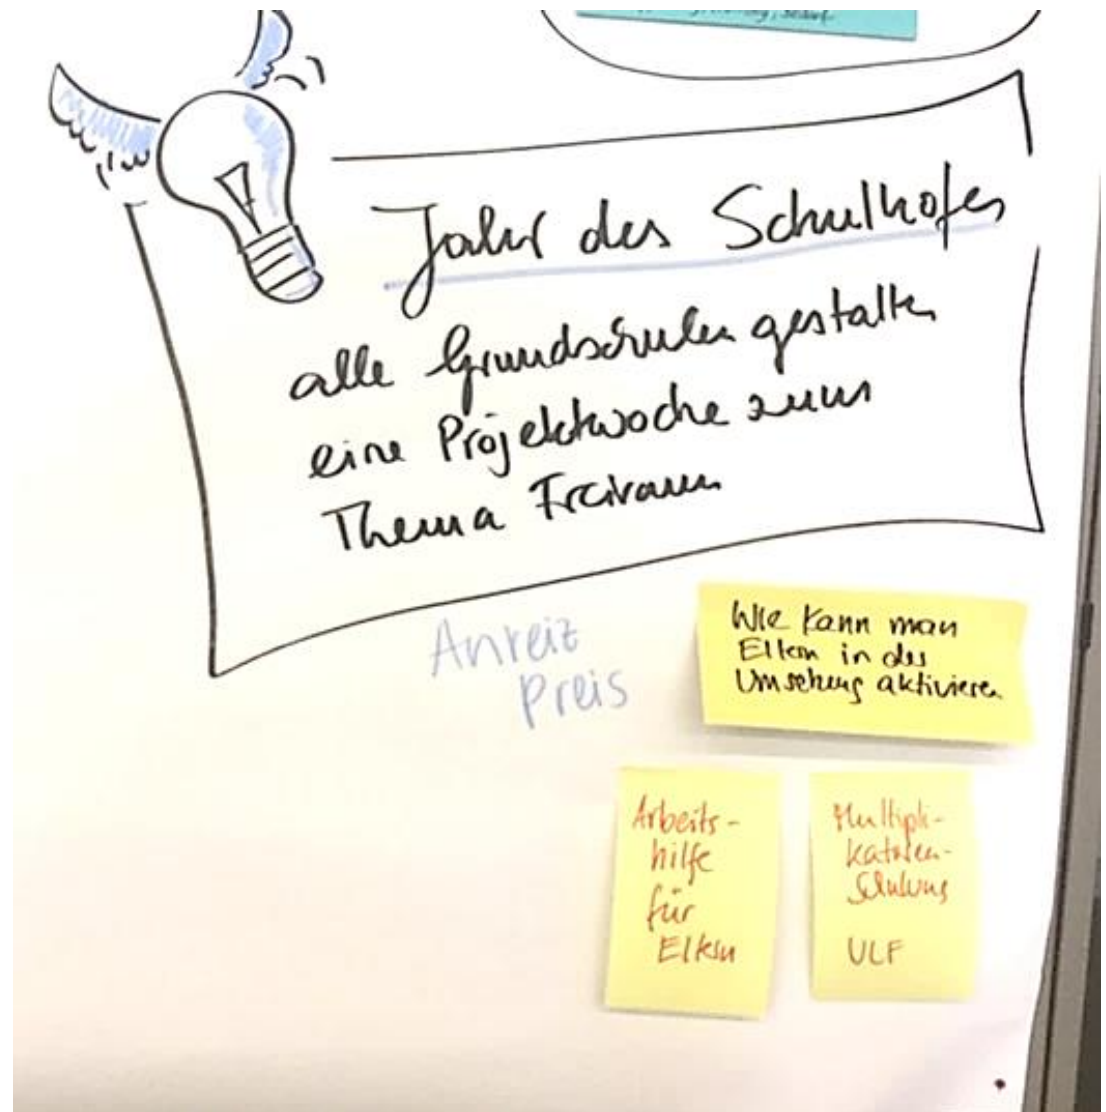 Jahr des Schulhofes
alle Grundschulen gestalten
eine Projektwoche zum
Thema Freiraum
Anreiz
Preis
Wie kann man
Eltern in der
Umsetzung aktivieren
Arbeits-
hilfe
für
Eltern
Multipli-
katoren-
Schulung
ULF